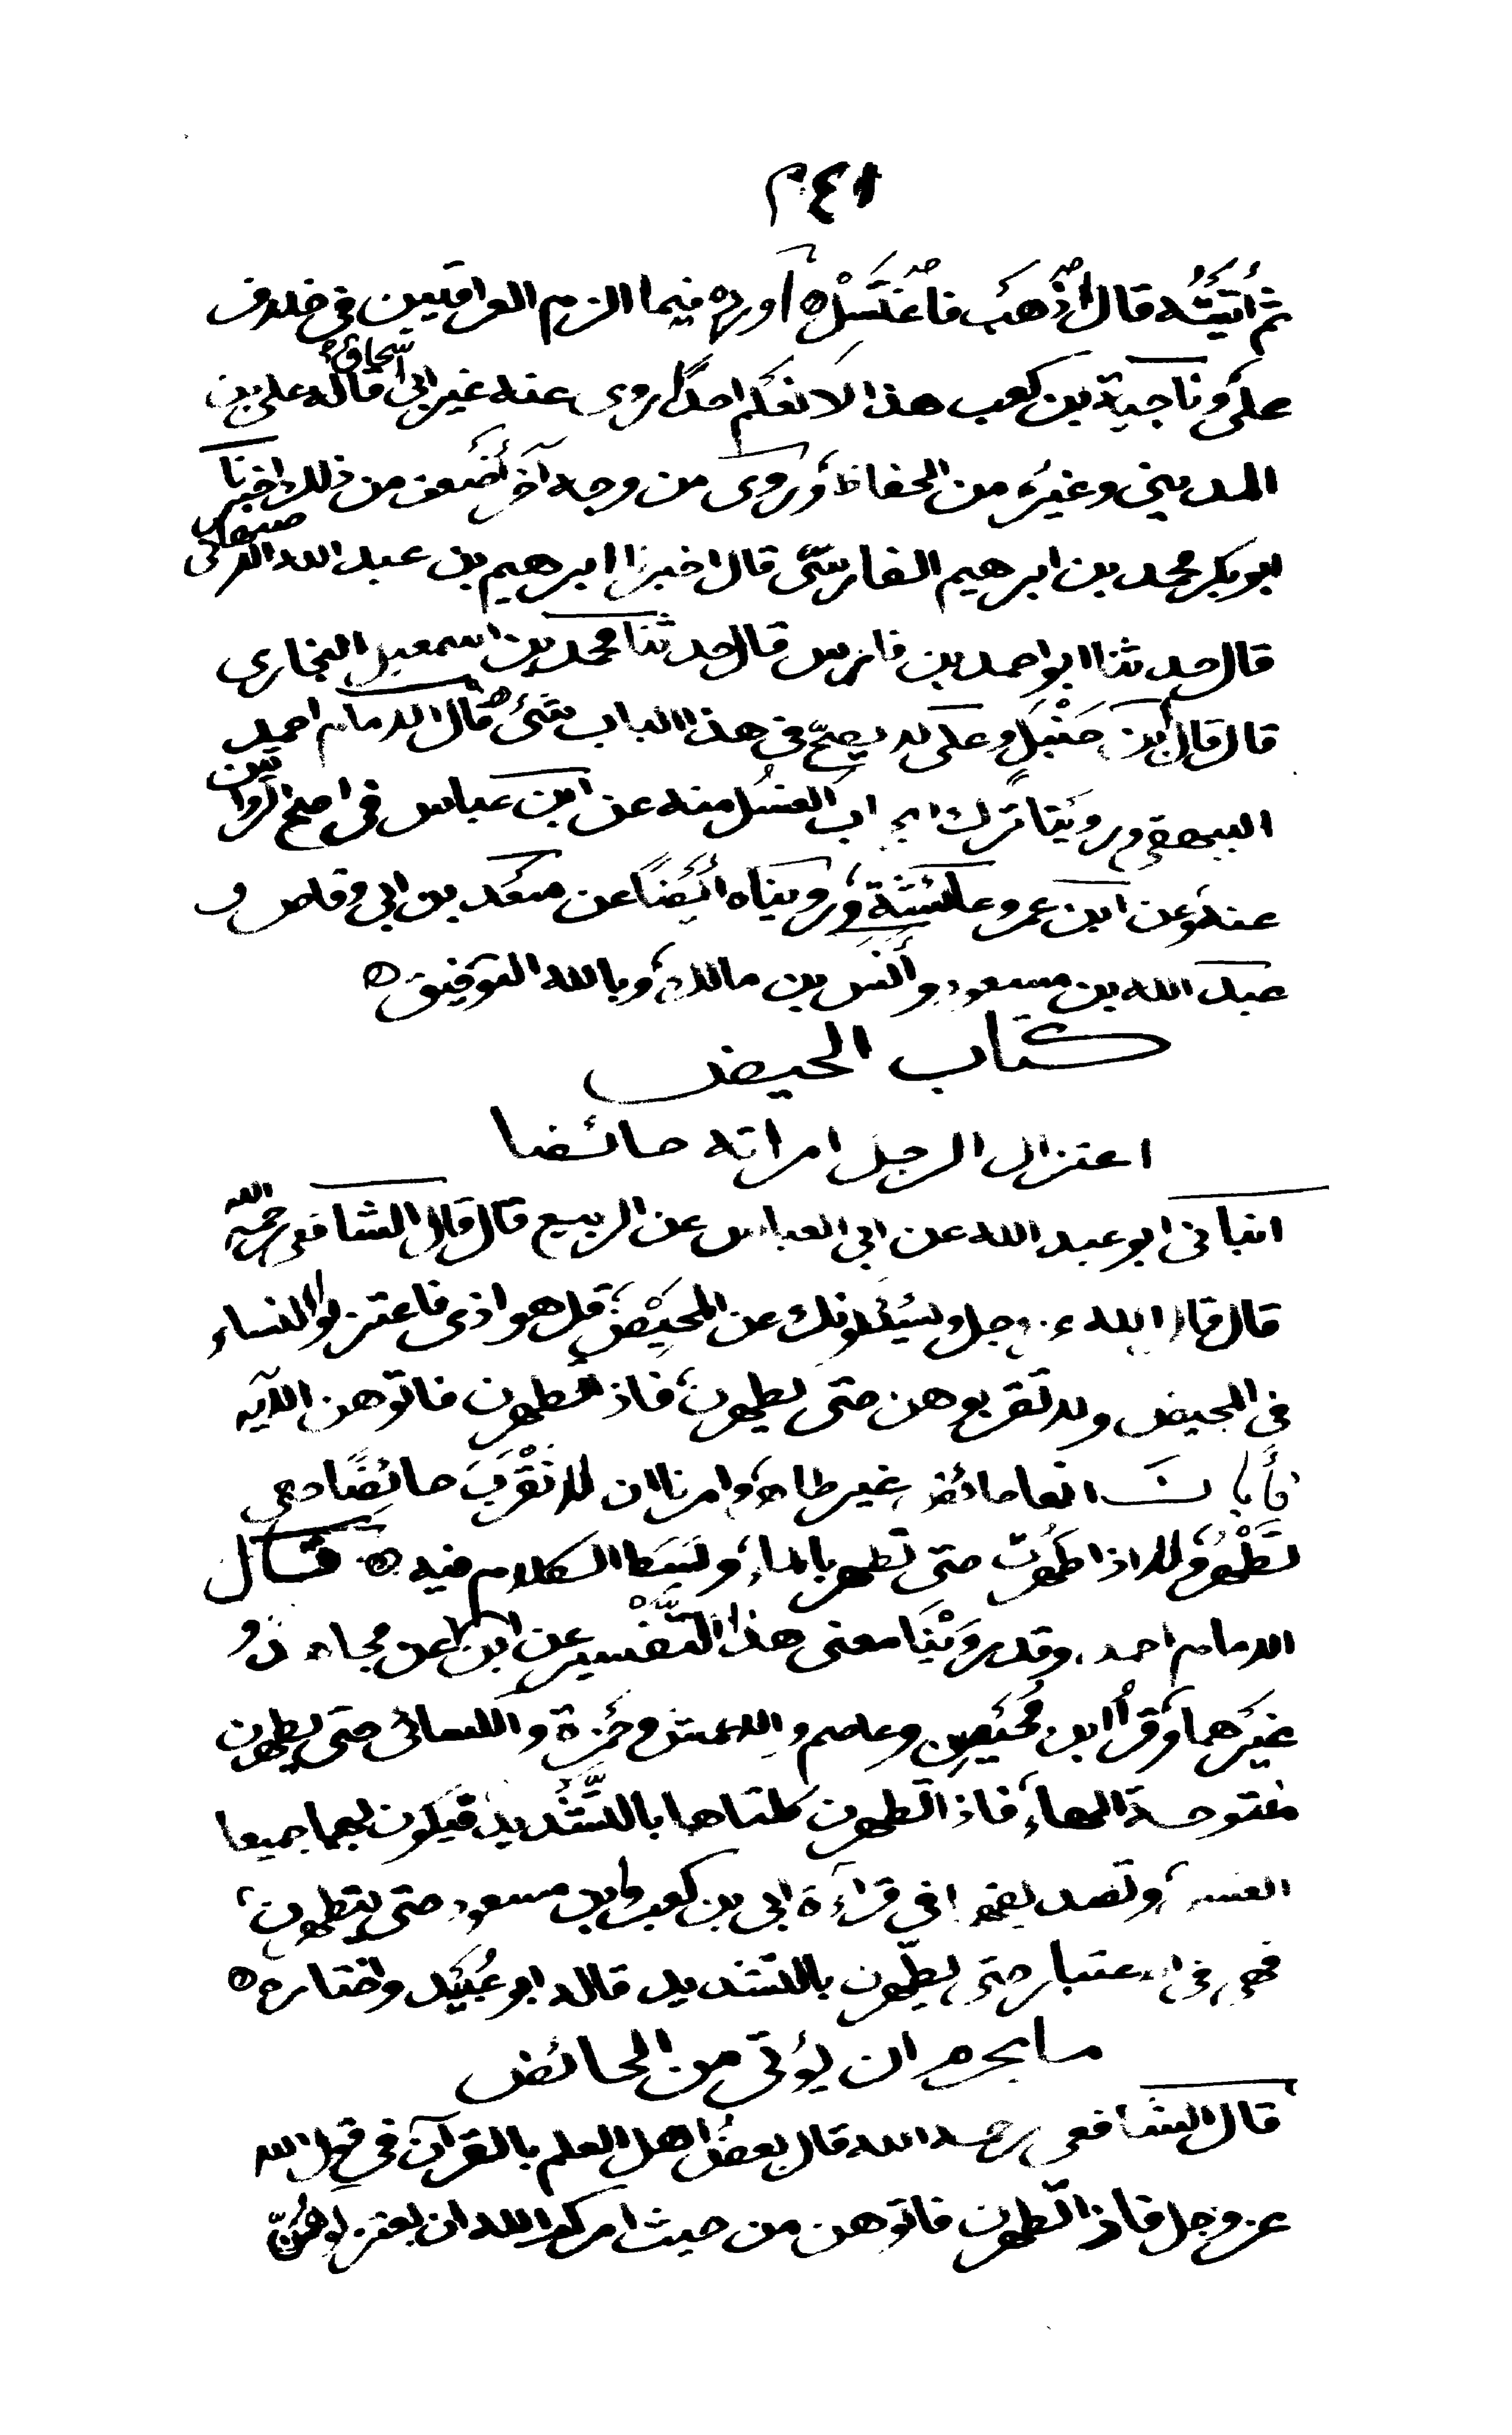 ٢٤١
ثم أتيته قال اذهب فاغتسل ه أورده فيما الزم العراقيين في خلاف
علي وناجية بن كعب هذا لا نعلم احدا روى عنه غير ابي اسحاق قاله علي بن
المديني وغيره من الحفاظ وروى من وجه آخر أضعف من ذلك اخبرنا
ابو بكر محمد بن ابرهيم الفارسي قال اخبرنا ابرهيم بن عبد الله الاصفهاني
قال حدثنا ابو احمد بن فارس قال حدثنا محمد بن اسمعيل البخاري
قال قال ابن حنبل وعلي لا يصح في هذا الباب شئ قال الامام احمد
البيهقي وروينا ترك ايجاب الغسل منه عن ابن عباس في اصح الروايتين
عنه وعن ابن عمر وعائشة ورويناه ايضا عن سعد بن ابي وقاص و
عبد الله بن مسعود وأنس بن مالك وبالله التوفيق ه
كتاب الحيض
اعتزال الرجل امراته حائضا
انباني ابو عبد الله عن ابي العباس عن الربيع قال قال الشافعي رحمه الله
قال قال الله عز وجل ويسئلونك عن المحيض قل هو اذى فاعتزلوا النساء
في المحيض ولا تقربوهن حتى يطهرن فاذا تطهرن فاتوهن الآيه
فأبان انها حائض غير طاهر وامرنا ان لا نقرب حائضا حتى
تطهر ولا اذا طهرت حتى تطهر بالماء وبسط الكلام فيه ه قال
الامام احمد وقد روينا معنى هذا التفسير عن ابن عباس مجاهد و
غيرهما وقرأ ابن محيصن وعاصم والاعمش وحمزة والكسائي حتى يطهرن
مفتوحة الهاء فاذا تطهرن كلتاها بالتشديد فيكون لهما جميعا
الغسل وتصديقها في قراءة ابي بن كعب وابن مسعود حتى يتطهرن
فهي في الاعتبار حتى يطهرن بالتشديد قاله ابو عبيد واختاره ه
ما يحرم ان يؤتى من الحائض
قال الشافعي رحمه الله قال بعض اهل العلم بالقرآن في قول الله
عز وجل فاذا تطهرن فاتوهن من حيث امركم الله ان يعتزلوهن